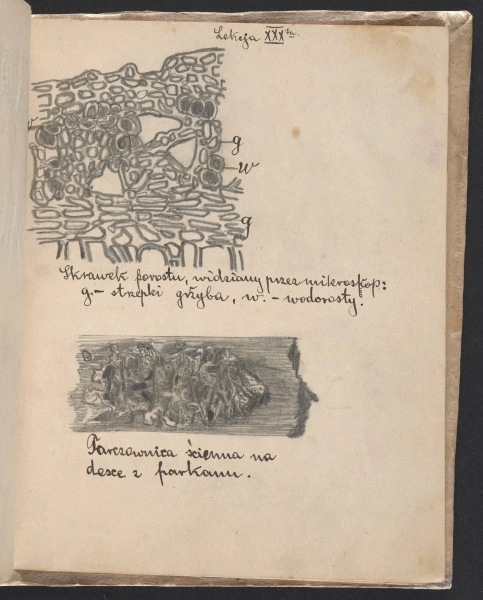 Lekcja XXX ta.
w
g
w
g
Skrawek porostu, widziany przez mikroskop:
g. – strzępki grzyba, w. – wodorosty.
Tarczownica ścienna na
desce z parkanu.